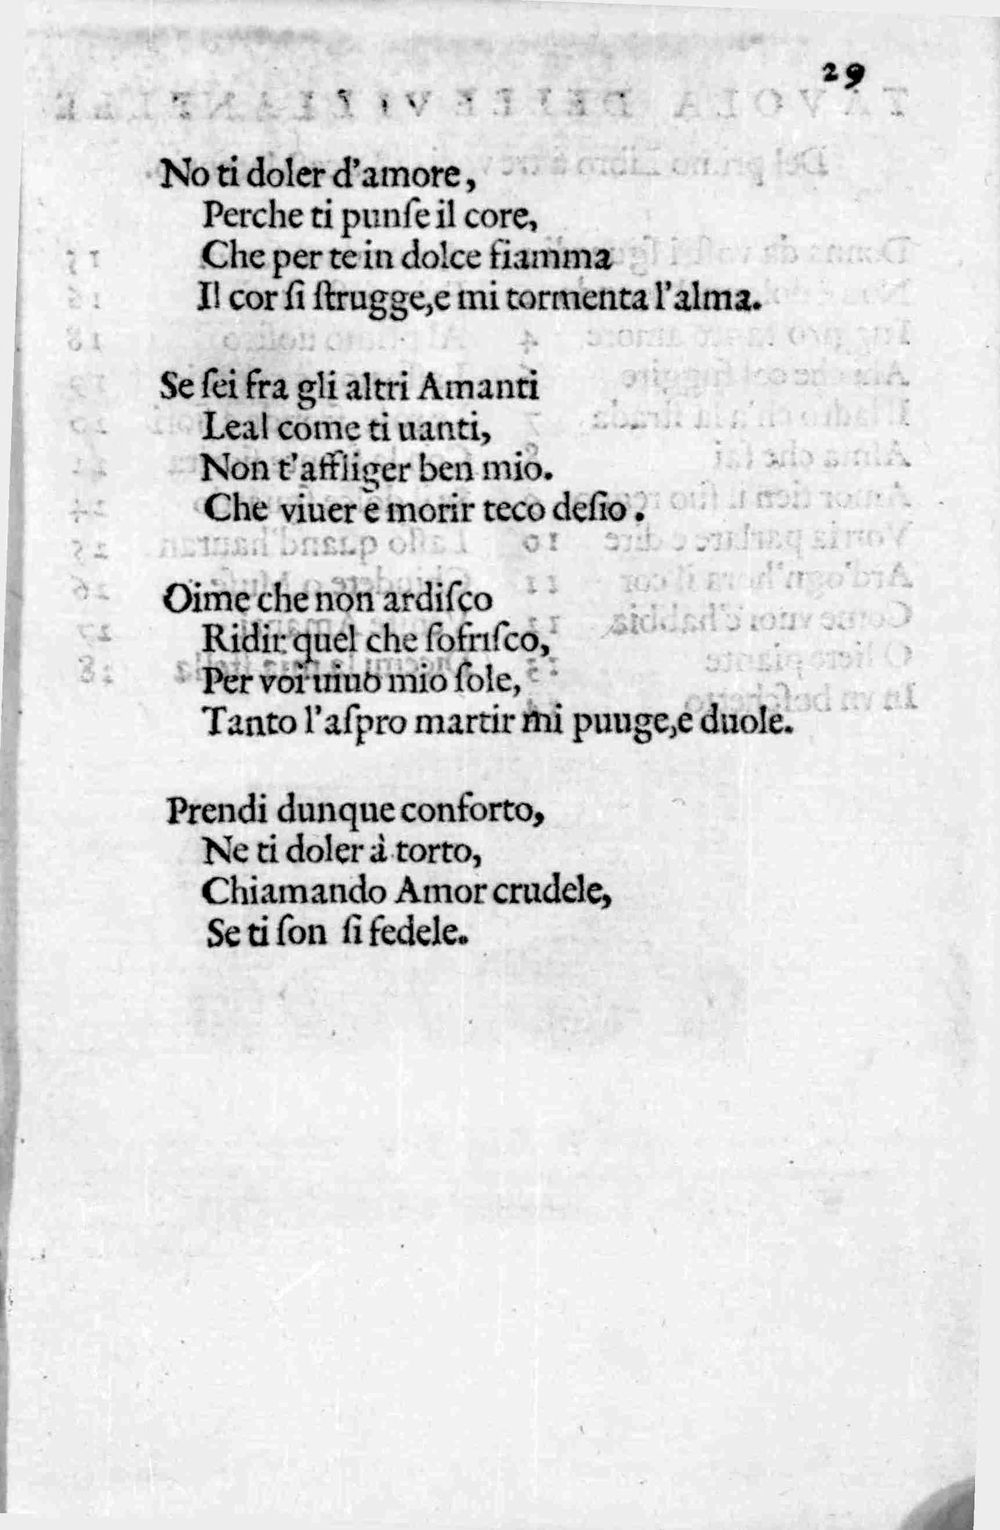 29
No ti doler d'amore,
Perche ti punſe il core,
Che per te in dolce fiamma
Il cor ſi ſtrugge,e mi tormenta l'alma.
Se ſei fra gli altri Amanti
Leal come ti uanti,
Non t'affliger ben mio.
Che viuer è morir teco deſio.
Oime che non ardiſco
Ridir quel che ſofriſco,
Per voi uiuo mio ſole,
Tanto l'aſpro martir mi puuge,e duole.
Prendi dunque conforto,
Ne ti doler à torto,
Chiamando Amor crudele,
Se ti ſon ſi fedele.